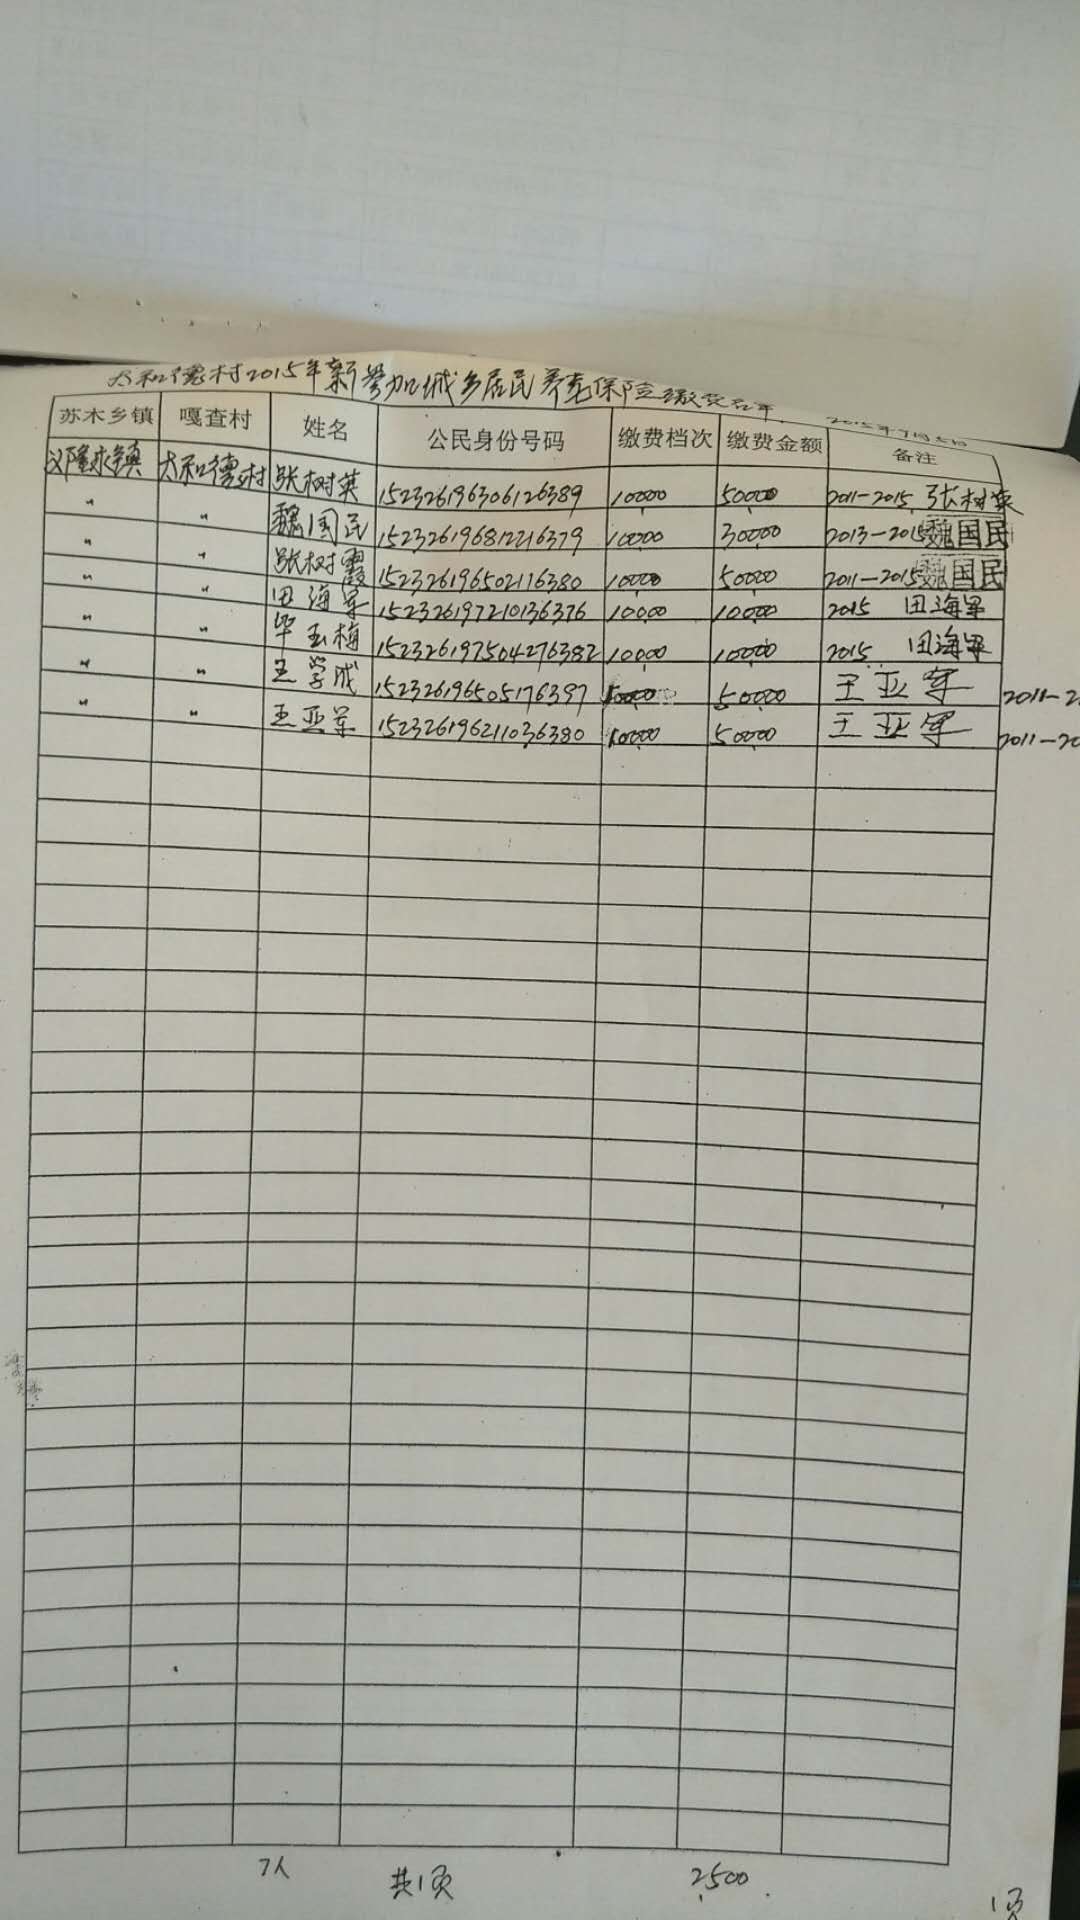 太和德村2015年新参加城乡居民养老保险缴费名单
2015年9月5日
苏木乡镇 嘎查村 姓名 公民身份号码 缴费档次 缴费金额 备注
太和德村 张树英 152326196306126389 100.00 500.00 2011-2015 张树英
〃 〃 魏国民 152326196812216379 100.00 300.00 2013-2015 魏国民
〃 〃 张树霞 152326196502116380 100.00 500.00 2011-2015 魏国民
〃 〃 田海军 152326197210136376 100.00 100.00 2015 田海军
〃 〃 毕玉梅 152326197504276382 100.00 100.00 2015 田海军
〃 〃 王学成 152326196505176397 100.00 500.00 王亚军 2011-2
〃 〃 王亚军 152326196211036380 100.00 500.00 王亚军 2011-20
7人 共1页 2500
1页